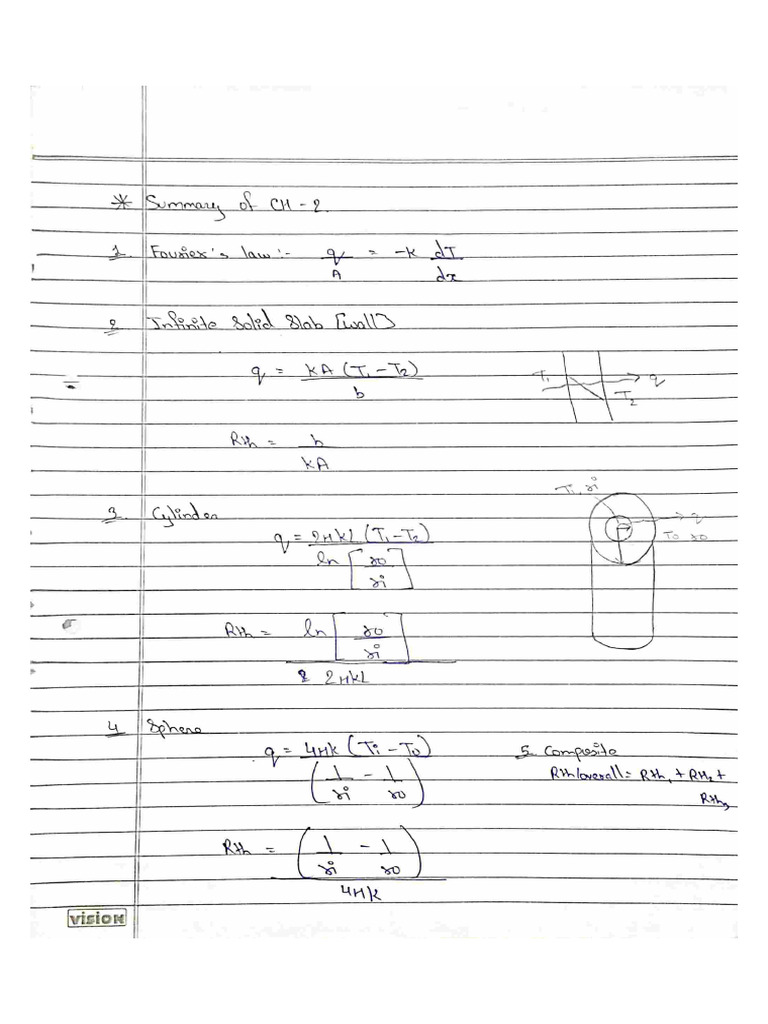 * Summary of CH-2.
1. Fourier's law :- q/A = -k dT/dx
2 Infinite Solid Slab [wall]
q = kA (T1 - T2) / b
T1 q
T2
Rth = b / kA
T1, ri
3. Cylinder
q = 2πkL (T1 - T2) / ln [ro/ri]
q
To ro
Rth = ln [ro/ri] / 2πkL
4 Sphere
q = 4πk (Ti - To) / (1/ri - 1/ro)
5. Composite
Rth/overall = Rth1 + Rth2 +
Rth3
Rth = (1/ri - 1/ro) / 4πk
VISION